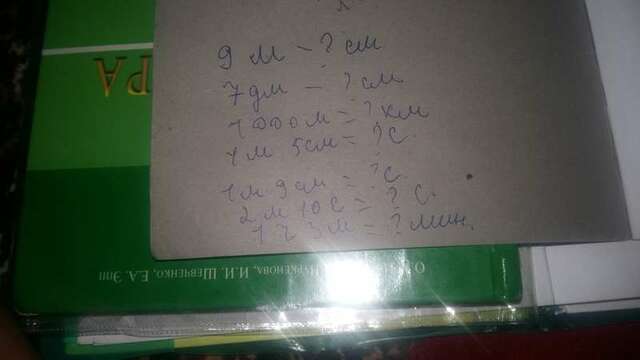 9 м - ? см
7 дм - ? см
1000 м = ? км
1 м 5 см = ? с.
1 м 9 см = ? с.
2 м 10 с = ? с.
1 ч 3 м = ? мин.
РА
И.И. ШЕВЧЕНКО, Е.А. ЭПП